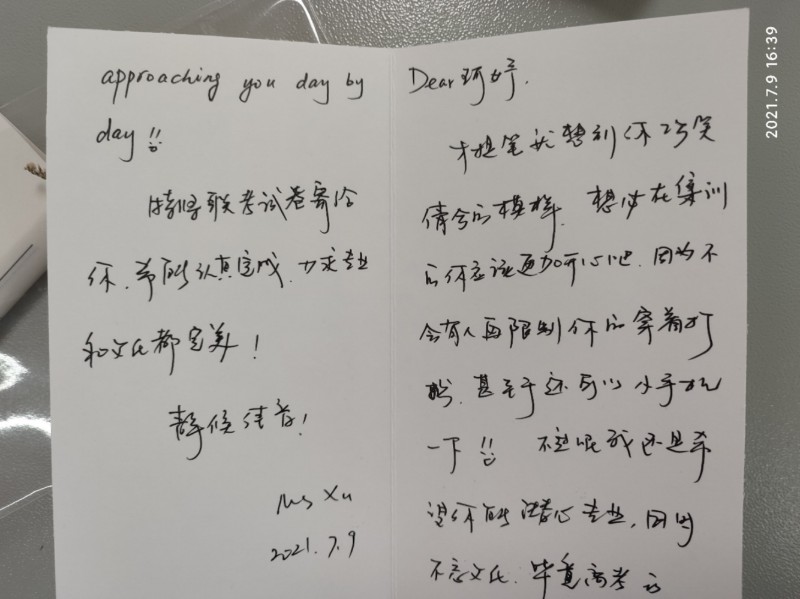 Dear 珂婷.
才提笔就想到你巧笑
倩兮的模样. 想必在集训
的你应该更加开心吧. 因为不
会有人再限制你的穿着打
扮. 甚至于还可以小手机
一下!! 不过呢我还是希
望你能潜心专业, 同时
不忘文化. 毕竟高考 is
approaching you day by
day!!
特将联考试卷寄给
你. 希能认真完成. 力求专业
和文化都完美!
静候佳音!
Ms Xu
2021.7.9
2021.7.9 16:39